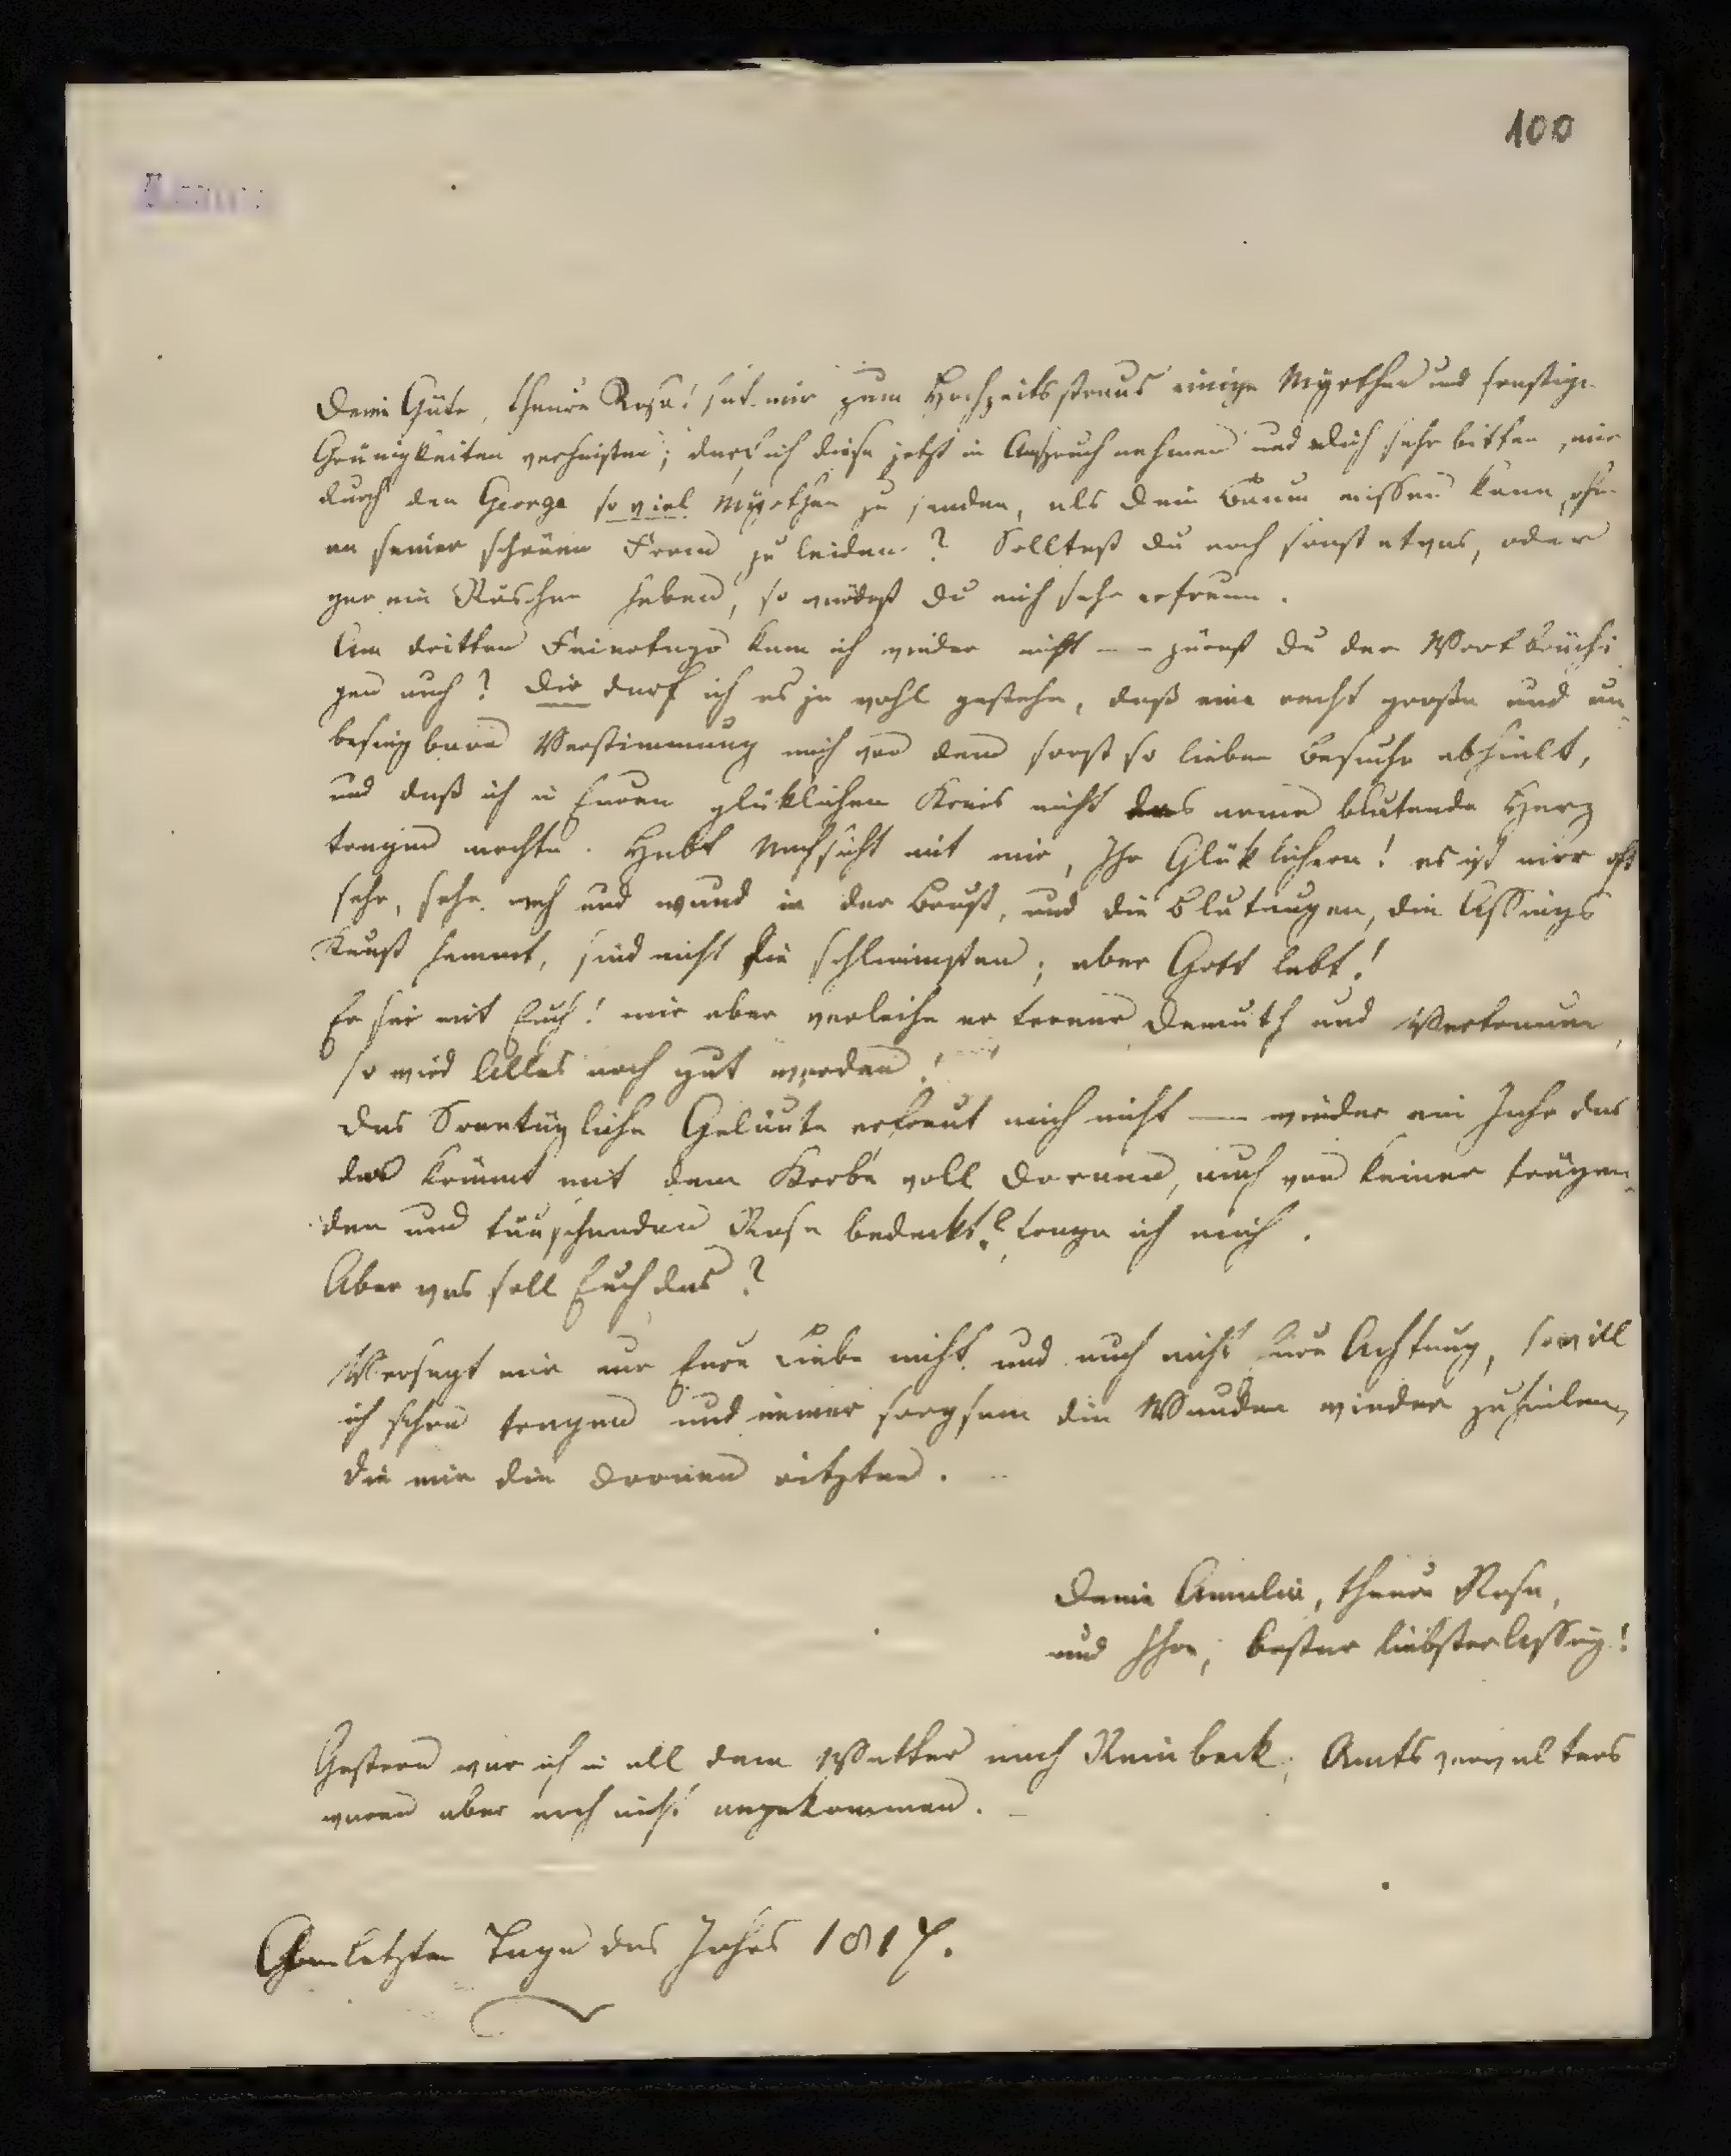 100
Deine Güte, theure Rosa! hat mir zum Hochzeitsstraus einige Myrthen und sonstige
Grünigkeiten verheißen; darf ich diese jetzt in Anspruch nehmen und dich sehr bitten, mir
durch den George so viel Myrthen zu senden, als dein Baum missen kann, ohne
an seiner schönen Form zu leiden? Solltest du noch sonst etwas, oder
gar ein Röschen haben, so würdest du mich sehr erfreun.
Am dritten Feiertage kam ich wieder nicht – – zürnst du der Wortbrüchi
gen auch? Dir darf ich es ja wohl gestehn, daß eine recht große und un-
besiegbare Verstimmung mich von dem sonst so lieben Besuche abhielt,
und daß ich in Euren glüklichen Kreis nicht das arme blutende Herz
tragen mochte. Habt Nachsicht mit mir, Ihr Glüklichen! es ist mir oft
sehr, sehr weh und wund in der Brust, und die Blutaugen, die Assings
Kunst hemmt, sind nicht die schlimmsten; aber Gott lebt!
Er sei mit Euch! mir aber verleihe er ferner Demuth und Vertrauen,
so wird Alles noch gut werden!
Das Sonntägliche Geläute erfreut mich nicht — wieder ein Jahr das
da kömmt mit dem Korbe voll Dornen, auch von keiner trügen-
den und täuschenden Rose bedeckt? frage ich mich.
Aber was soll Euch das?
Versagt mir nur Eure Liebe nicht und auch nicht Eure Achtung, so will
ich schon tragen und immer sorgsam die Wunden wieder zuheilen,
die mir die Dornen ritzten.
Deine Amalie, theure Rosa,
und Ihre, bester liebster Assing!
Gestern war ich in all dem Wetter nach Reinbeck; Amtsverwalters
waren aber noch nicht angekommen. –
Am letzten Tage des Jahres 1817.